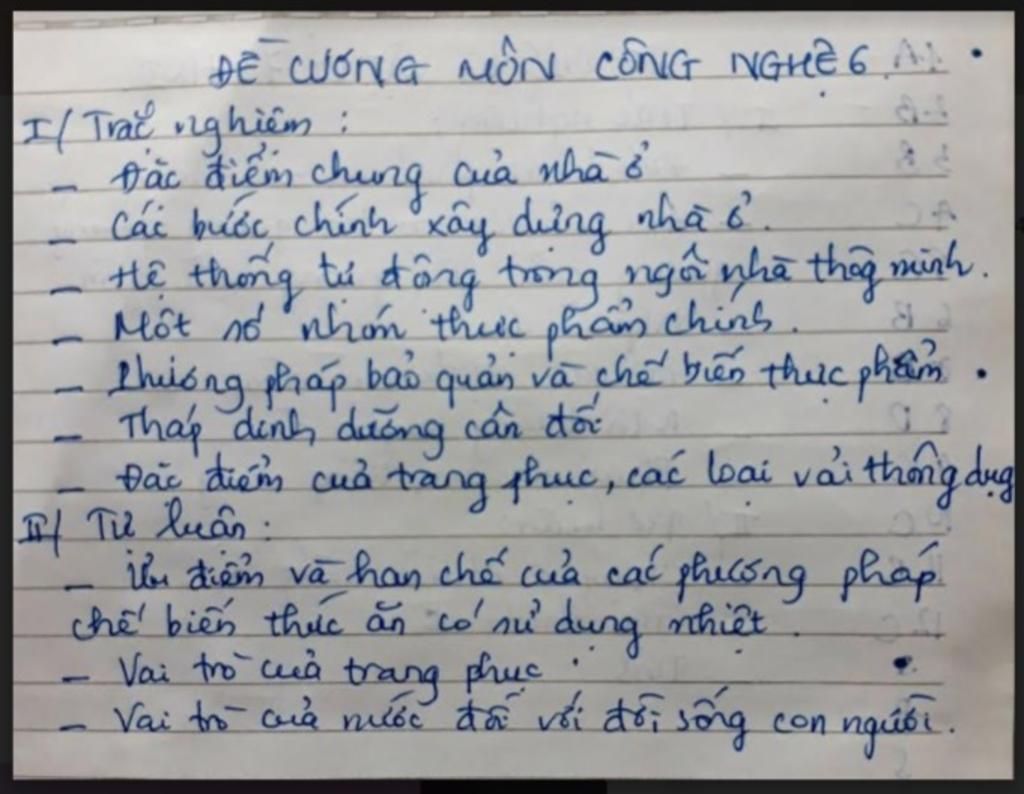 ĐỀ CƯƠNG MÔN CÔNG NGHỆ 6.
I/ Trắc nghiệm :
- Đặc điểm chung của nhà ở
- Các bước chính xây dựng nhà ở.
- Hệ thống tự động trong ngôi nhà thông minh.
- Một số nhóm thực phẩm chính.
- Phương pháp bảo quản và chế biến thực phẩm.
- Tháp dinh dưỡng cân đối
- Đặc điểm của trang phục, các loại vải thông dụng
II/ Tự luận :
- Ưu điểm và hạn chế của các phương pháp
chế biến thức ăn có sử dụng nhiệt.
- Vai trò của trang phục.
- Vai trò của nước đối với đời sống con người.